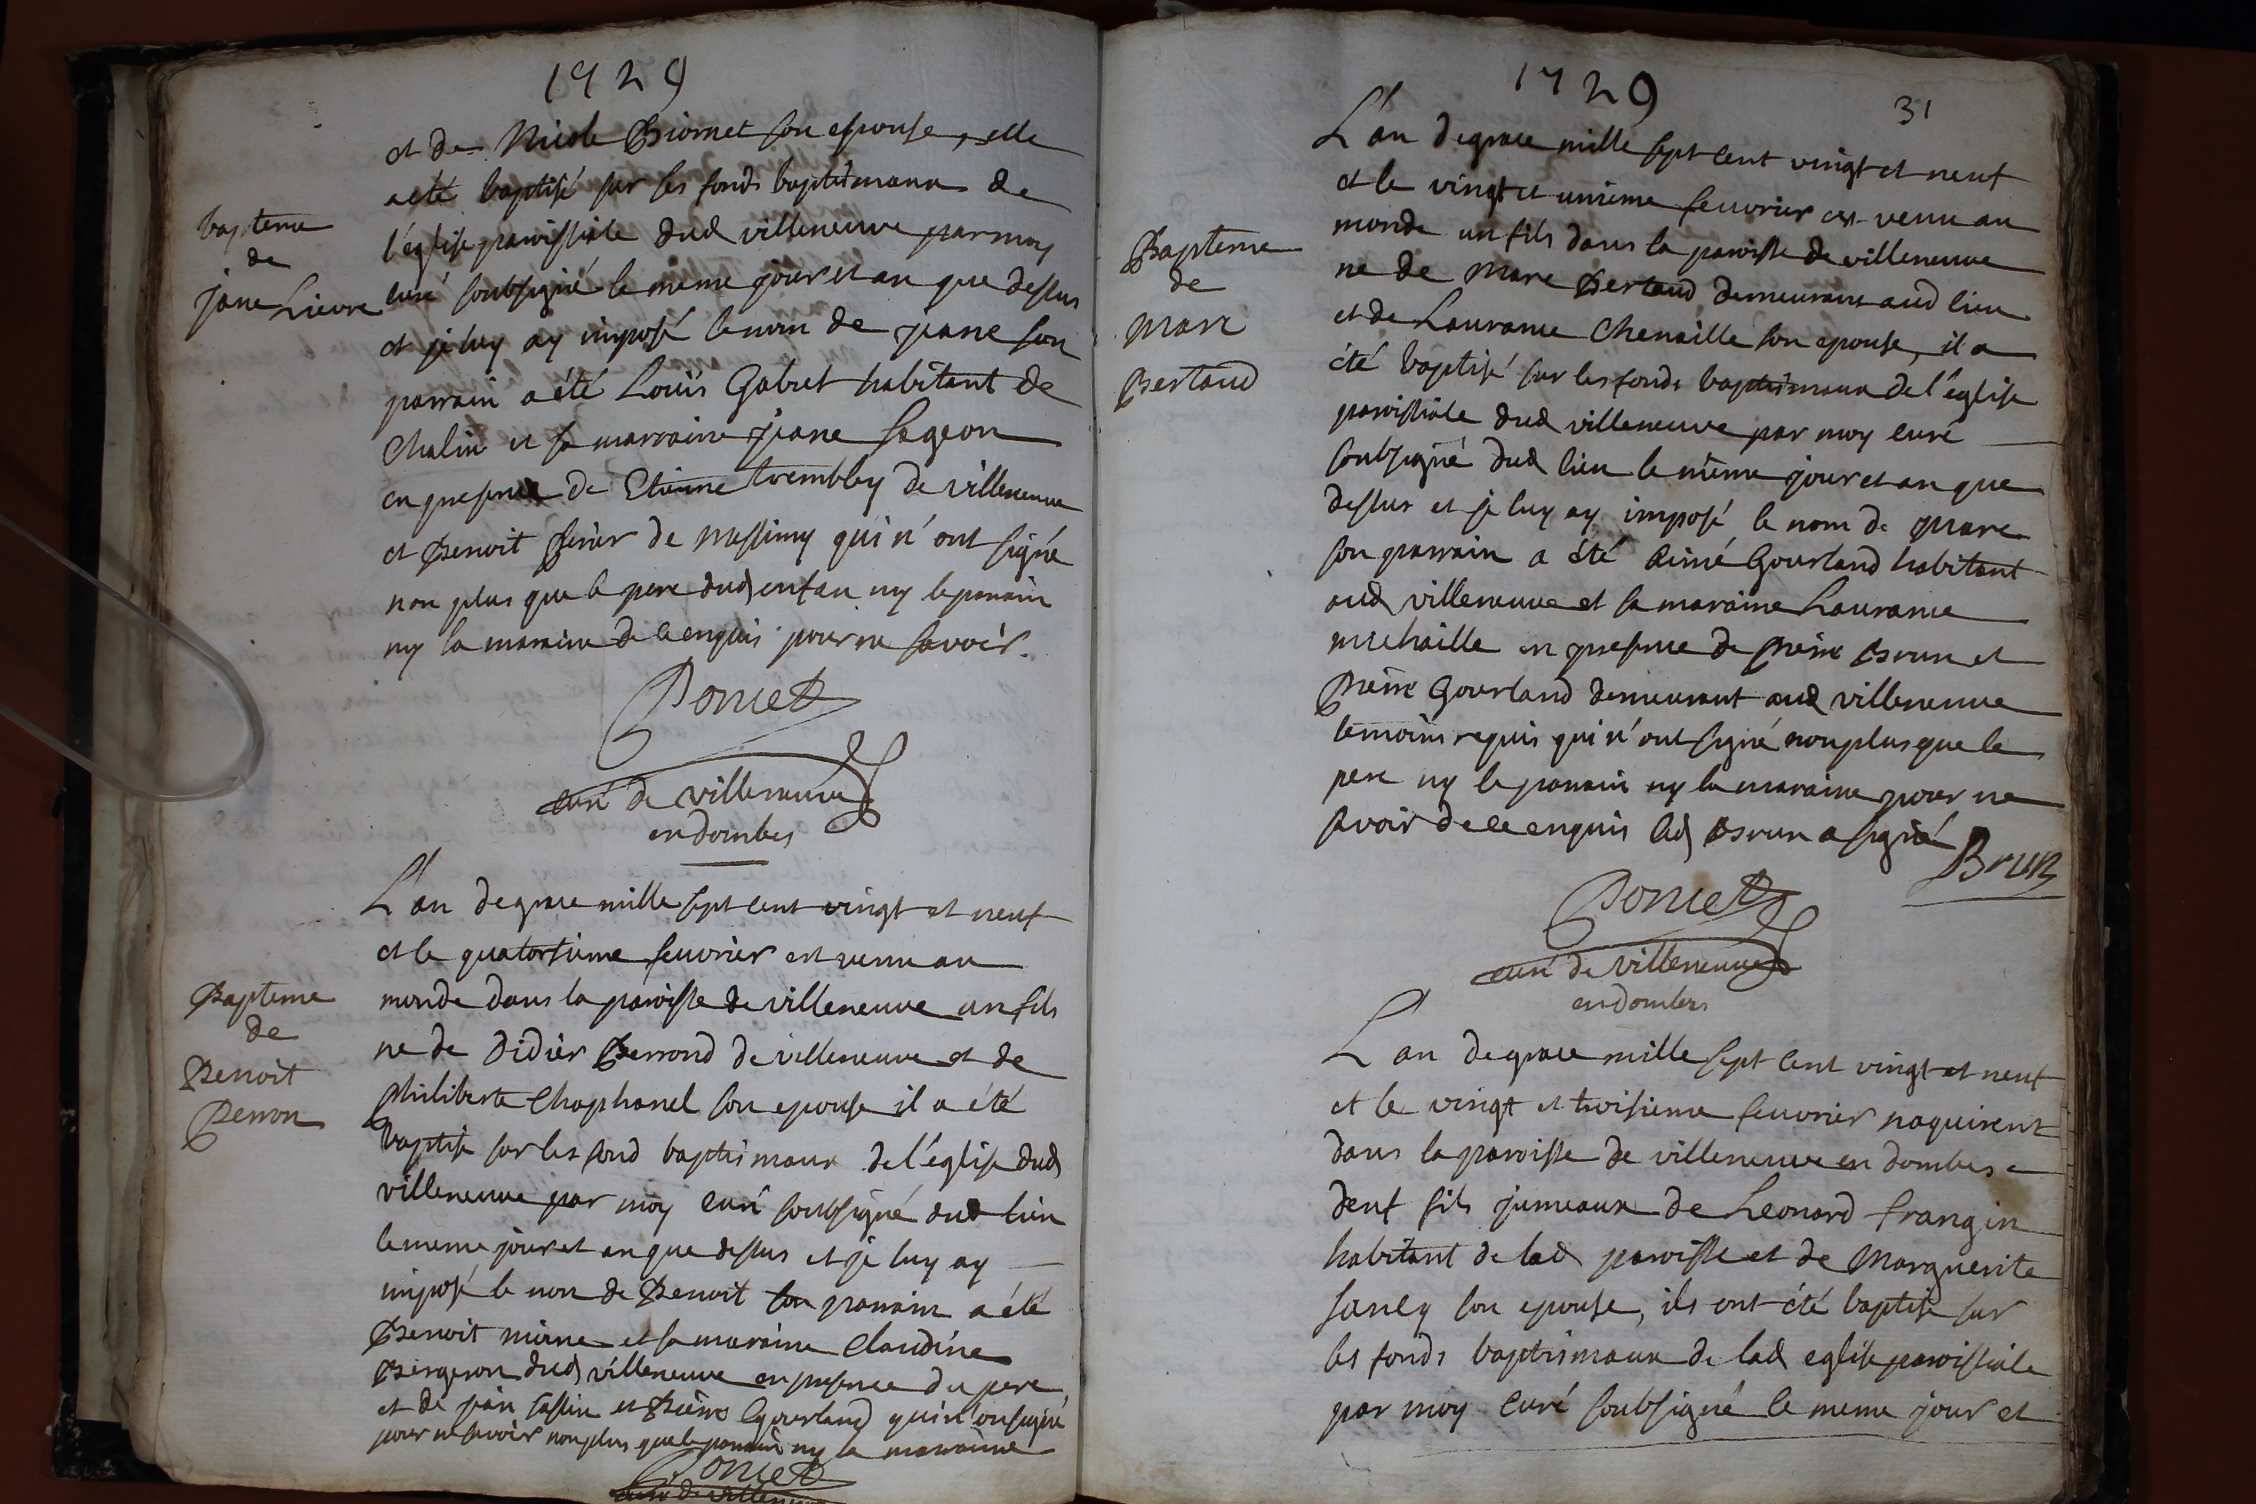 1729
et de Nicole Biornet son espouse, elle
a eté baptisé sur les fonds baptismaux de
l'église paroissiale dud villeneuve par moy
curé soubsigné le même jour et an que dessus
et je luy ay imposé le nom de jeane son
parrain a été Louïs Gabet habitant de
Chalin et sa marraine jeane sageon
en presence de Etienne trembley de villeneuve
et Benoit de Messimy qui n'ont signé
non plus que le pere dud enfan ny le parain
ny la maraine de ce enquis pour ne savoir.
Poncet
curé de villeneuve
en dombes
bapteme
de
jane Lievre
L'an de grace mille sept cent vingt et neuf
et le quatorsieme feuvrier est venu au
monde dans la paroisse de villeneuve un fils
ne de Didier Perrond de villeneuve et de
philiberte Chaphanel son epouse il a été
baptise sur les fond baptismaux de l'église dud
villeneuve par moy curé soubsigné dud lieu
le meme jour et an que dessus et je luy ay
imposé le non de Benoit son parrain a été
Benoit et sa maraine Claudine
Bergeron dud villeneuve en presence du pere
et de jean et Pierre Gourland qui n'on signé
pour ne savoir non plus que le parrain ny la maraine
Poncet
curé de villeneuve
Bapteme
de
Benoit
Perron
1729
31
L'an de grace mille sept cent vingt et neuf
et le vingt et unieme feuvrier est venu au
monde un fils dans la paroisse de villeneuve
ne de Marc Bertaud demeurant aud lieu
et de Laurance Chenaille son epouse, il a
été baptisé sur les fonds baptismaux de l'église
paroissiale dud villeneuve par moy curé
soubsigné dud lieu le même jour et an que
dessus et je luy ay imposé le nom de Marc
son parrain a été Aimé Gourland habitant
aud villeneuve et sa maraine Laurance
michaille en presence de Pierre Brun et
Pierre Gourland demeurant aud villeneuve
temoins requis qui n'ont signé non plus que le
pere ny le parrain ny la maraine pour ne
savoir de ce enquis led Brun a signé
Brun
Poncet
curé de villeneuve
en dombes
Bapteme
de
Marc
Bertaud
L'an de grace mille sept cent vingt et neuf
et le vingt et troisieme feuvrier naquirent
dans la paroisse de villeneuve en dombes
deux fils jumeaux de Leonard frangin
habitant de lad paroisse et de Marguerite
sancy son epouse, ils ont été baptise sur
les fonds baptismaux de lad eglise paroissiale
par moy curé soubsigné le meme jour et